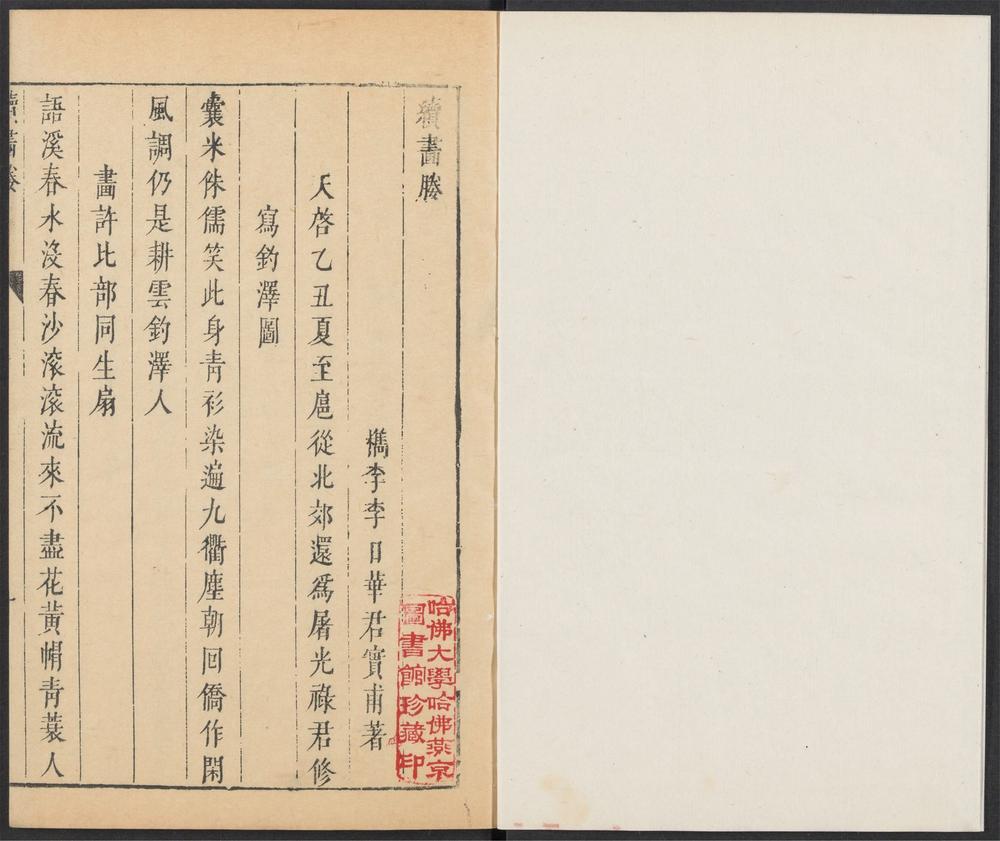 續畫媵
檇李李日華君實甫著
天啓乙丑夏至扈從北郊還爲屠光祿君修
寫釣澤圖
囊米侏儒笑此身青衫染遍九衢塵朝回僑作閑
風調仍是耕雲釣澤人
畫許比部同生扇
語溪春水沒春沙滚滚流來不盡花黃帽青蓑人
哈佛大學哈佛燕京
圖書館珍藏印